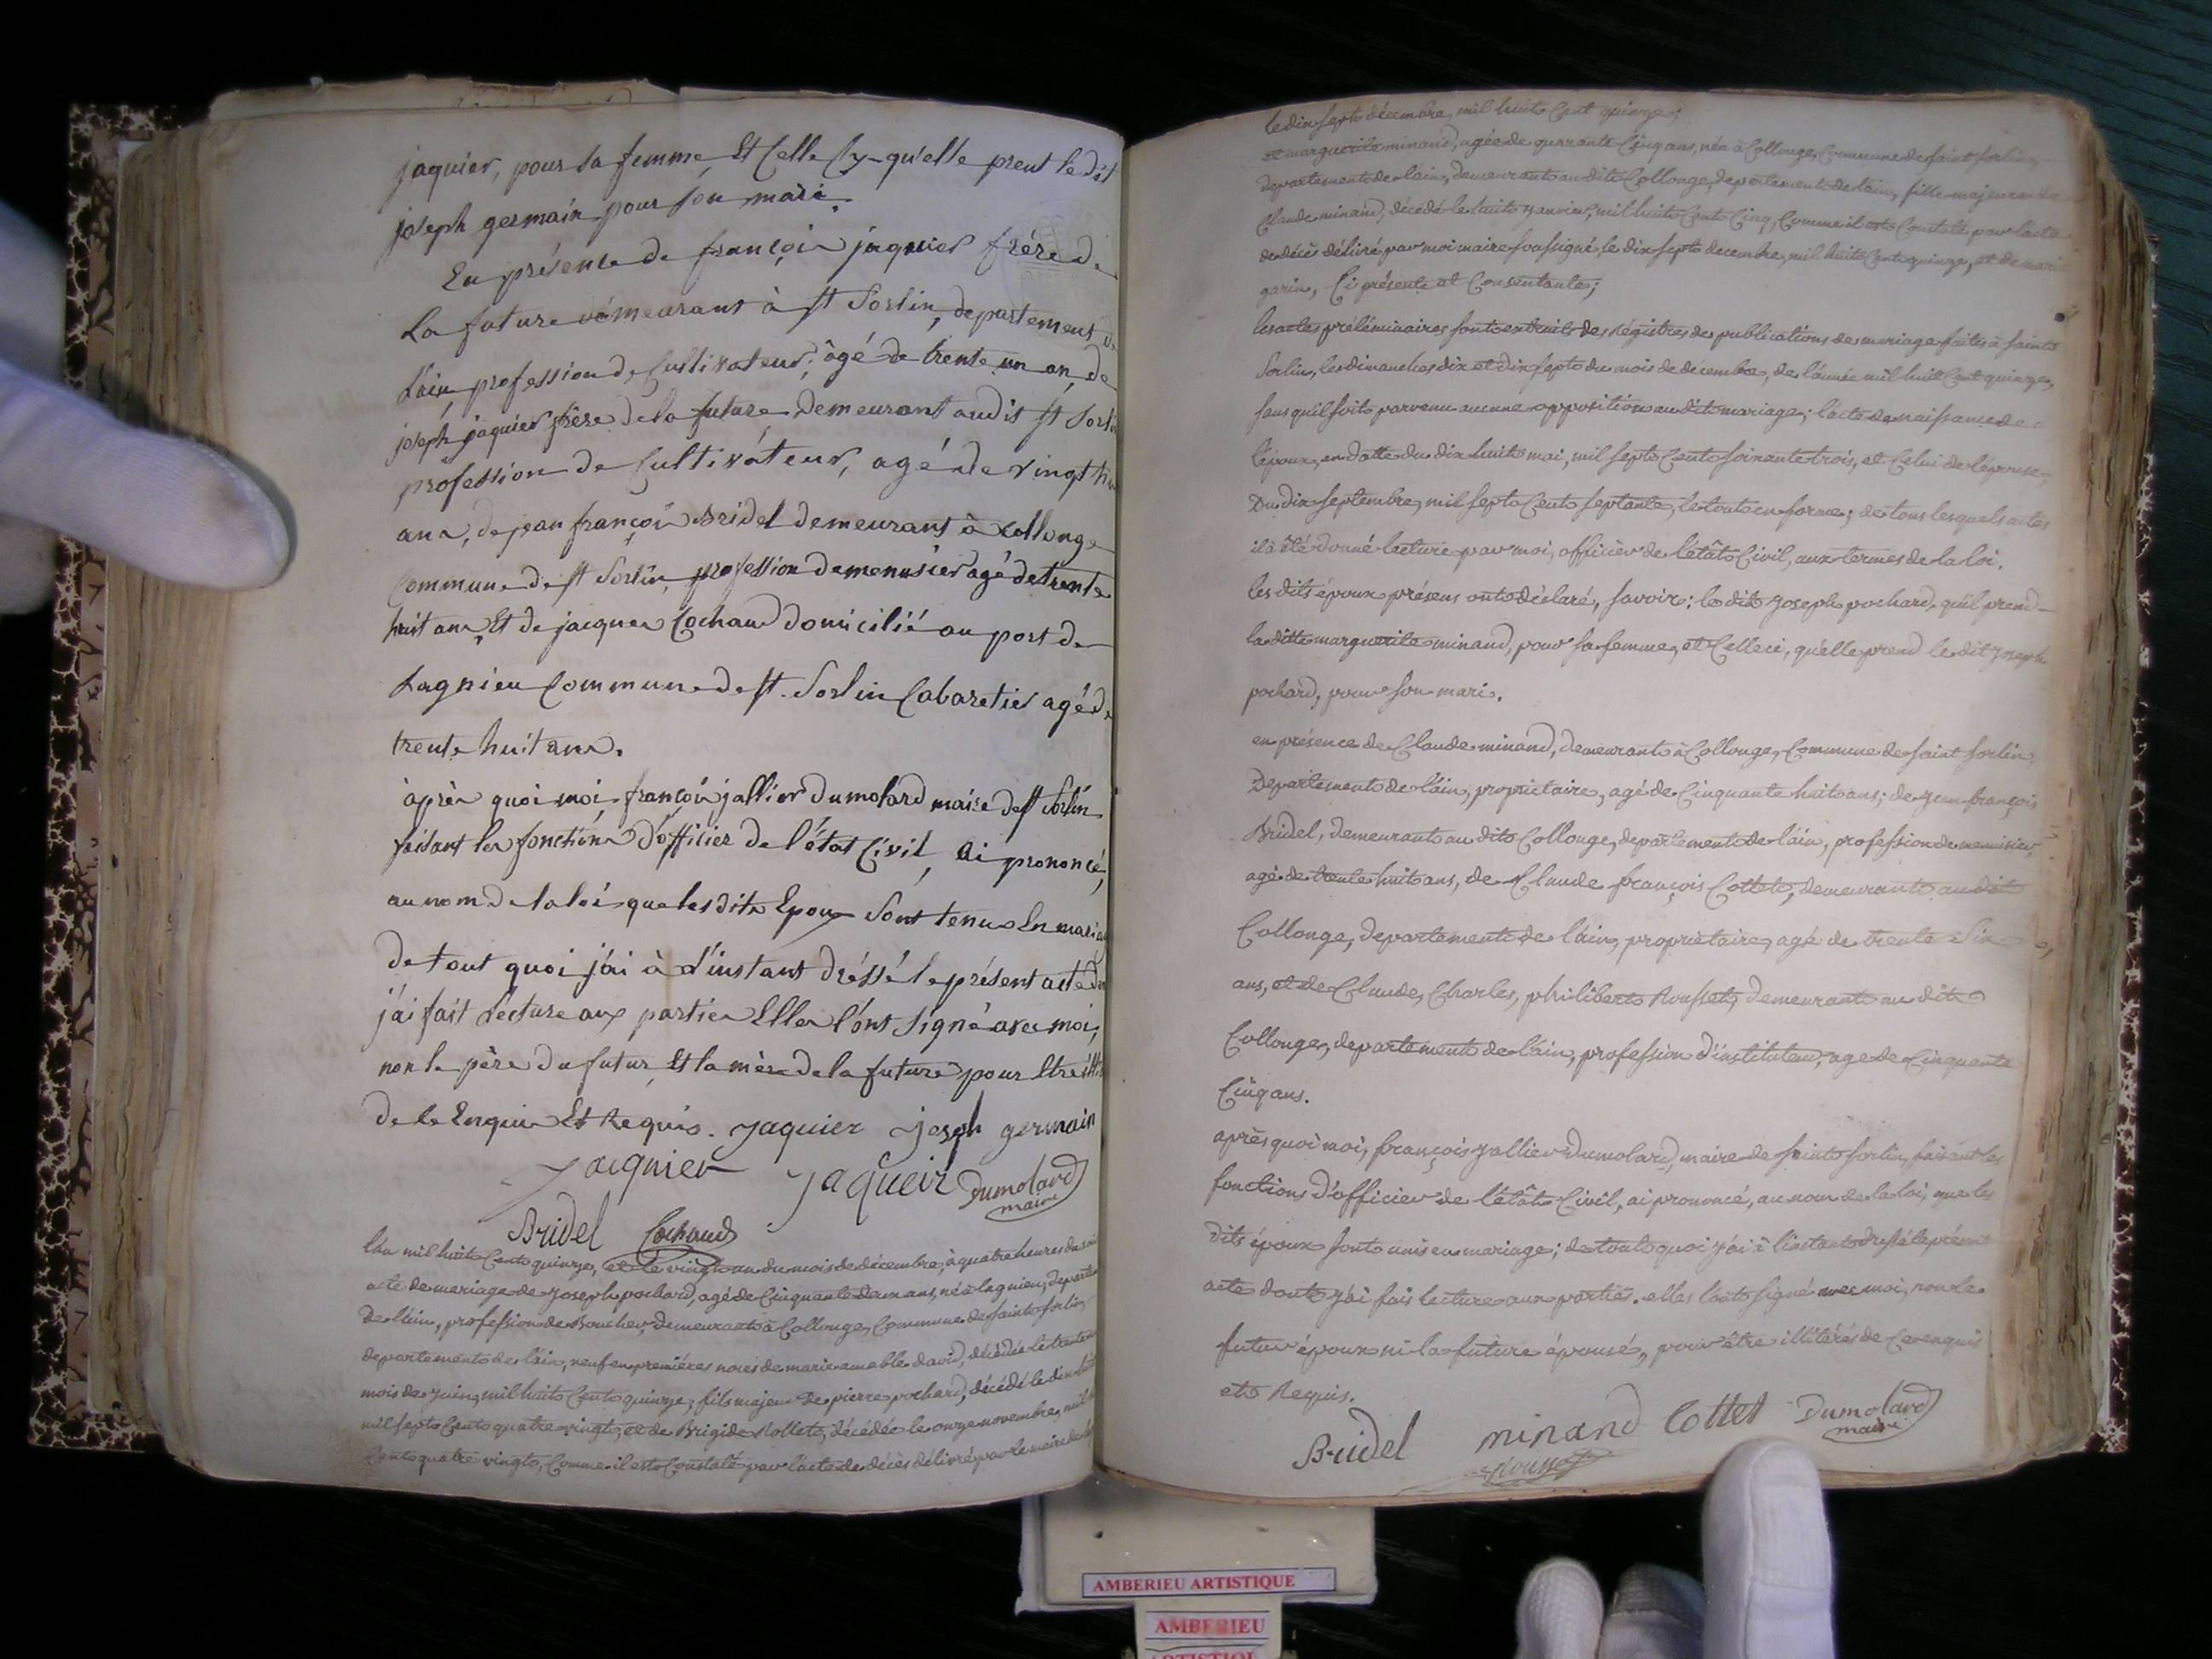 jaquier, pour sa femme Et Celle Cy qu'elle prent le dit
joseph germain pour son mari.
En présence de françois jaquier frére de
La future démeurant à st Sorlin, departement de
L'ain profession de Cultivateur, âgé de trente un an, de
joseph jaquier frère de la future demeurant audit st Sorlin
profession de Cultivateur, agé de vingt huit
ans, de jean françois Bridel demeurant à Collonge
Commune de st Sorlin, profession de menusier agé de trente
huit ans Et de jacques Cochaud domicilié au port de
Lagnieu Commune de st. Sorlin Cabaretier agé de
trente huit ans.
après quoi moi françois jallier Dumolard maire de st Sorlin
faisant les fonctions D'officier de l'état Civil, ai prononcé,
au nom de la loi que les dits Epoux Sont tenus En mariage
de tout quoi j'ai à L'instant dréssé le présent acte dont
j'ai fait Lecture aux parties Elles l'ont Signé avec moi,
non le père du futur Et la mère de la future pour Etre
de le Enquis Et Requis. jaquier joseph germain
jacquier jaqueir Dumolard
maire
Bridel Cochaud
l'an mil huit Cent quinze, et le vingt un du mois de décembre, à quatre heures du soir
acte de mariage de joseph pochard, agé de Cinquante deux ans, né à lagnieu, departement
de l'ain, profession de Boucher, demeurant à Collonge, Commune de saint sorlin,
departement de l'ain, veuf en premiéres noces de marie amable david, décédée le trente
mois de juin, mil huit Cent quinze, fils majeur de pierre pochard, décédé le dix huit
mil sept Cent quatre vingt, et de Brigide Collet, décédée le onze novembre, mil sept
Cent quatre vingt, Comme il est Constaté par l'acte de décès délivré par le maire de
le dix sept décembre, mil huit Cent quinze,
et marguerite minand, agée de quarante Cinq ans, née à Collonge, Commune de saint sorlin,
departement de l'ain, demeurant au dit Collonge, departement de l'ain, fille majeure de
Claude minand, décédé le huit janvier, mil huit Cent Cinq, Comme il est Constaté par l'acte
de décès délivré par moi maire soussigné, le dix sept decembre, mil huit Cent quinze, et de marie
garin, Ci présente et Consentante;
les actes préliminaires sont extraits des Régistres de publications de mariage faites à saint
Sorlin, les dimanches dix et dix sept du mois de décembre, de l'année mil huit Cent quinze,
sans qu'il soit parvenu aucune opposition au dit mariage; l'acte de naissance de
l'époux, en datte du dix huit mai, mil sept Cent soixante trois, et Celui de l'épouse
Du dix septembre, mil sept Cent septante, le tout en forme; de tous lesquels actes
il à été donné lecture par moi, officier de l'etât Civil, aux termes de la loi.
les dits époux présens ont déclaré, savoir; le dit joseph pochard, qu'il prend
la ditte marguerite minand, pour sa femme, et Celleci, qu'elle prend le dit joseph
pochard, pour son mari.
en présence de Claude minand, demeurant à Collonge, Commune de saint sorlin
Departement de l'ain, propriétaire, agé de Cinquante huit ans; de jean françois
Bridel, demeurant au dit Collonge, departement de l'ain, profession de menuisier,
agé de trente huit ans, de Claude françois Cottet, demeurant au dit
Collonge, departement de l'ain, propriétaire, agé de trente Six
ans, et de Claude, Charles, philibert Rousset, demeurant au dit
Collonge, departement de l'ain, profession d'instituteur, agé de Cinquante
Cinq ans.
après quoi moi, françois jallier Dumolard, maire de saint sorlin, faisant les
fonctions d'officier de l'étât Civil, ai prononcé, au nom de la loi, que les
dits époux sont unis en mariage; de tout quoi j'ai à l'instant dressé le présent
acte dont j'ai fais lecture aux parties. elles l'ont signé avec moi, non le
futur époux ni la future épouse, pour être illitérés de Ce enquis
et Requis.
Bridel minand Cottet Dumolard
maire
Rousset
AMBERIEU ARTISTIQUE
AMBERIEU
ARTISTIQUE